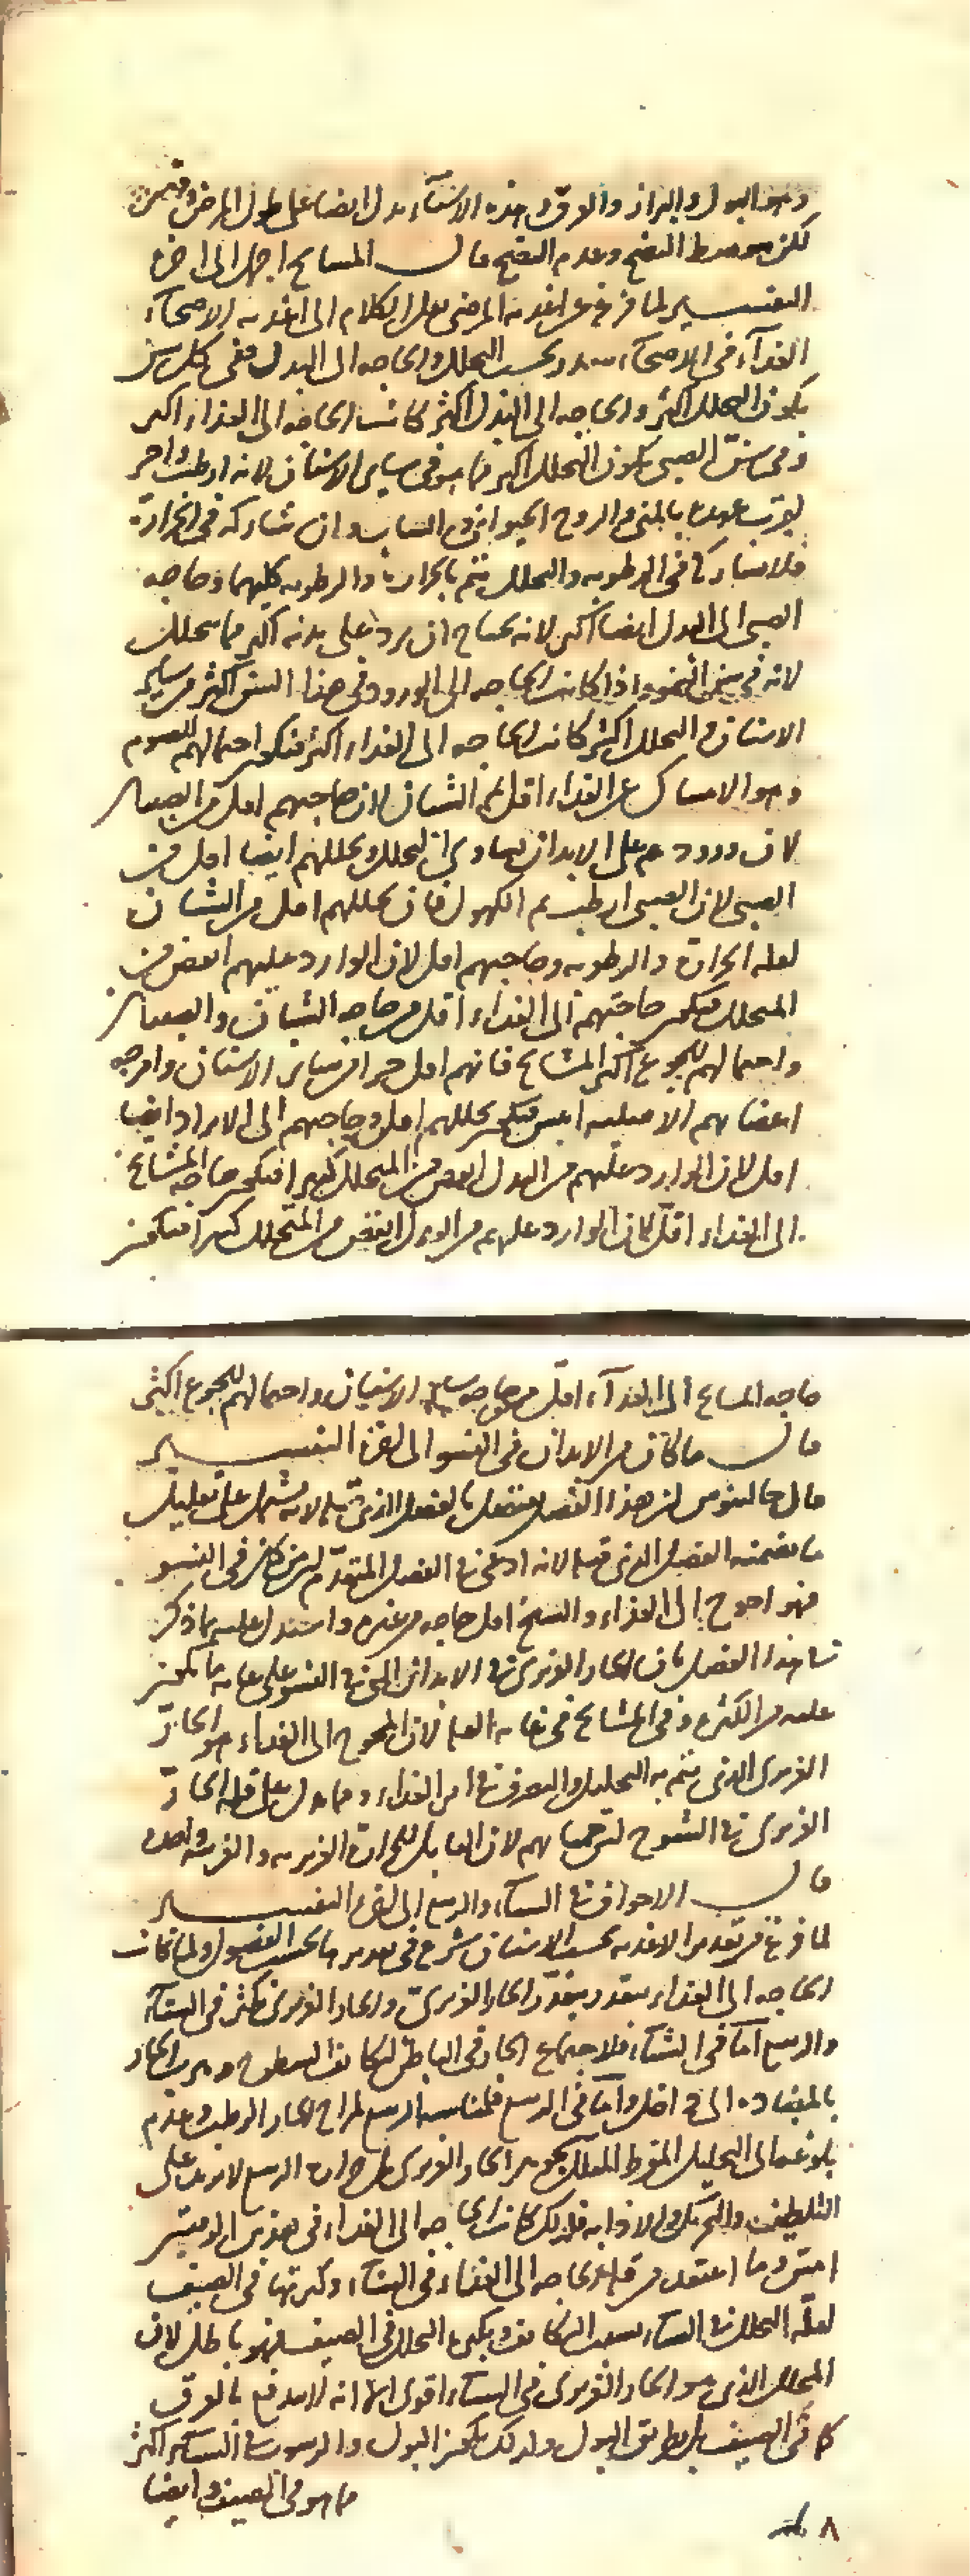 وهو البول والبراز والعرق وهذه الاشياء تدل ايضا على طول المرض وقصره
لكن بتوسط النضج وعدم النضج قال المشايخ احمل الى اخره
التفسير لما فرغ عن اغذية المرضى نقل الكلام الى اغذية الاصحآء
الغدآء في الاصحآء يتقدر بحسب التحلل والحاجه الى البدل ففي كل سن
يكون التحلل اكثر والحاجه الى البدل اكثر كانت الحاجه الى الغذاء اكثر
ففي سن الصبى يكون التحلل اكثر مما هو في ساير الاسنان لانه ارطب واحر
لقرب عهده بالمنى والروح الحيواني والشاب وان شاركه في الحرارة
فلا يشاركه في الرطوبه والتحلل يتم بالحراره والرطوبه كليهما وحاجه
الصبى الى البدل ايضا اكثر لانه يحتاج ان يرد على بدنه اكثر مما يتحلل
لانه في سن النمو واذا كانت الحاجه الى الورود في هذا السن اكثر من ساير
الاسنان والتحلل اكثر كانت الحاجه الى الغداء اكثر فيكون احتمالهم للصوم
وهو الامساك عن الغداء اقل ثم الشبان لان حاجتهم اقل من الصبيان
لان ورودهم على الابدان يساوى التحلل وتحللهم ايضا اقل من
الصبى لان الصبى ارطب ثم الكهول فان تحللهم اقل من الشبان
لقله الحرارة والرطوبه وحاجتهم اقل لان الوارد عليهم انقص من
المتحلل فيكون حاجتهم الى الغداء اقل من حاجه الشبان والصبيان
واحتمالهم للجوع اكثر المشايخ فانهم اقل حرا من ساير الاسنان وامزجه
اعضائهم الاصليه ايبس فيكون تحللهم اقل وحاجتهم الى الايراد ايضا
اقل لان الوارد عليهم من البدل انقص من المتحلل كثيرا فيكون حاجه المشايخ
الى الغداء اقل لان الوارد عليهم من البدل انقص من المتحلل كثيرا فيكون
حاجه المشايخ الى الغدآء اقل من حاجه ساير الاسنان واحتمالهم للجوع اكثر
قال ما كان من الابدان في النشو الى اخره التفسير
قال جالينوس ان هذا الفصل متصل بالفصل الذى قبله لانه يشتمل على تعليل
ما تضمنه الفصل الذى قبله لانه ادعى في الفصل المتقدم ان من كان في النشو
فهو احوج الى الغذاء والشيخ اقل حاجه من غيره واستدل عليه بما ذكر
في هذا الفصل بان الحار الغريزى في الابدان التي في النشو على غايه ما يكون
عليه من الكثره وفي المشايخ في غايه القلة لان المحوج الى الغداء هو الحارّ
الغريزى الذى يتم به التحليل والتصرف في امر الغذاء ومما يدل على قله الحارّ
الغريزى في الشيوخ ان حمياتهم لان القابل للحراره الغريزيه والغريبه واحده
قال الاجواف في الشتاء والربيع الى اخره التفسير
لما فرغ من تقدير الاغذيه بحسب الاسنان شرع في تقديرها بحسب الفصول ولما كانت
الحاجه الى الغداء يتقدر بقدر الحار الغريزى والحار الغريزى يكثر في الشتآء
والربيع اما في الشتآء فلاجتماع الحار في الباطن لتكاثف السطوح وهرب الحار
بالمضاده الى داخل واما في الربيع فلمناسبه الربيع لمزاج الحار الرطب وعدم
بلوغه الى التحليل المفرط المقلل لجوهر الحار الغريزى فان حراره الربيع لا يزيد على
التلطيف والتحريك والاذابه فلذلك كانت الحاجه الى الغداء في هذين الوقتين
امس وما اعتقد من قله الحاجه الى الغذاء في الشتآء وكثرتها في الصيف
لقلّه التحلل في الشتاء بسبب التكاثف وبكثره التحلل في الصيف فهو باطل لان
المحلل الذى هو الحار الغريزى في الشتآء اقوى الا انه لا يندفع بالعرق
كما في الصيف بل بطريق البول ولذلك يكون البول والرسوب في الشتآء اكثر
مما هو في الصيف وايضا
٨